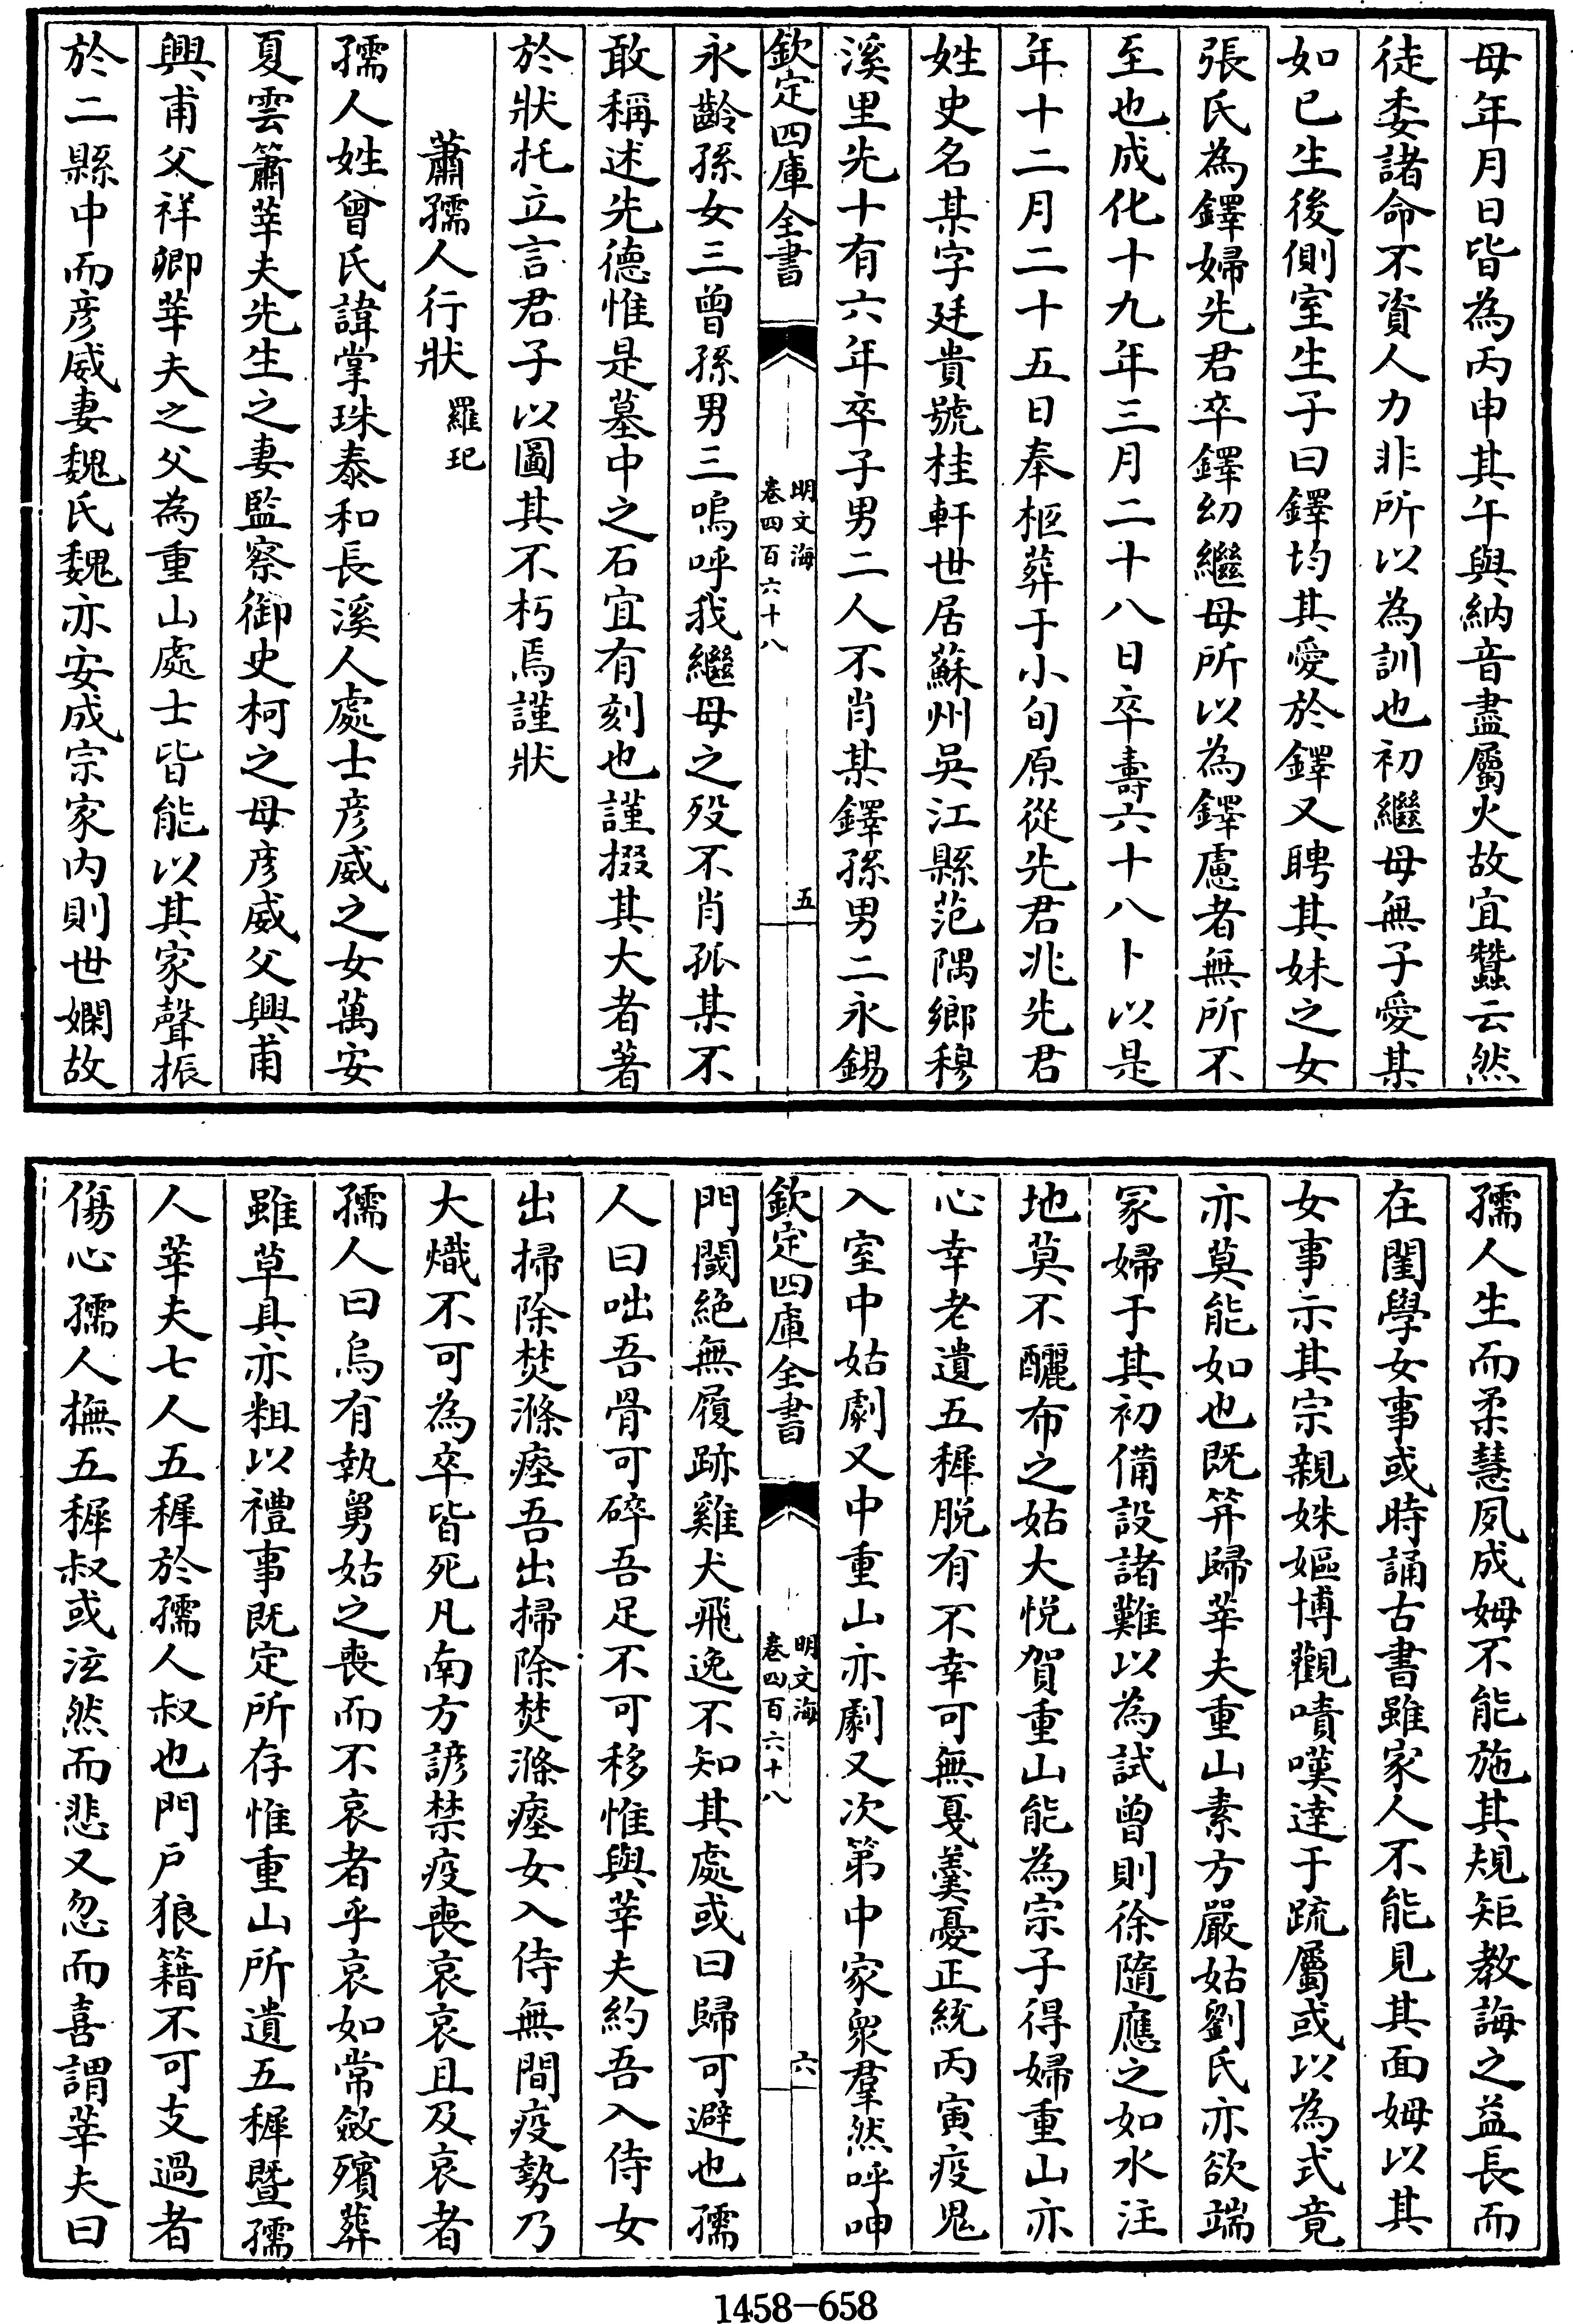 母年月日皆為丙申其午與納音盡屬火故宜蠶云然
徒委諸命不資人力非所以為訓也初繼母無子愛某
如已生後側室生子曰鐸均其愛於鐸又聘其妹之女
張氏為鐸婦先君卒鐸幼繼母所以為鐸慮者無所不
至也成化十九年三月二十八日卒壽六十八卜以是
年十二月二十五日奉柩葬于小旬原從先君兆先君
姓史名某字廷貴號桂軒世居蘇州吳江縣范隅鄉穆
溪里先十有六年卒子男二人不肖某鐸孫男二永錫
欽定四庫全書
明文海
卷四百六十八
五
永齡孫女三曾孫男三嗚呼我繼母之殁不肖孤某不
敢稱述先德惟是墓中之石宜有刻也謹掇其大者著
於狀托立言君子以圖其不朽焉謹狀
蕭孺人行狀 羅玘
孺人姓曾氏諱掌珠泰和長溪人處士彦威之女萬安
夏雲簫莘夫先生之妻監察御史柯之母彦威父興甫
興甫父祥卿莘夫之父為重山處士皆能以其家聲振
於二縣中而彦威妻魏氏魏亦安成宗家内則世嫻故
孺人生而柔慧夙成姆不能施其規矩教誨之益長而
在閨學女事或時誦古書雖家人不能見其面姆以其
女事示其宗親姝嫗博觀嘖嘆達于疏屬或以為式竟
亦莫能如也既笄歸莘夫重山素方嚴姑劉氏亦欲端
冢婦于其初備設諸難以為試曾則徐隨應之如水注
地莫不釃布之姑大悦賀重山能為宗子得婦重山亦
心幸老遺五穉脱有不幸可無戛羹憂正統丙寅疫鬼
入室中姑劇又中重山亦劇又次第中家衆羣然呼呻
欽定四庫全書
明文海
卷四百六十八
六
門閾絶無履跡雞犬飛逸不知其處或曰歸可避也孺
人曰咄吾骨可碎吾足不可移惟與莘夫約吾入侍女
出掃除焚滌瘞吾出掃除焚滌瘞女入侍無間疫勢乃
大熾不可為卒皆死凡南方諺禁疫喪哀哀且及哀者
孺人曰烏有執舅姑之喪而不哀者乎哀如常斂殯葬
雖草具亦粗以禮事既定所存惟重山所遺五穉暨孺
人莘夫七人五穉於孺人叔也門戶狼籍不可支過者
傷心孺人撫五穉叔或泫然而悲又忽而喜謂莘夫曰
1458-658